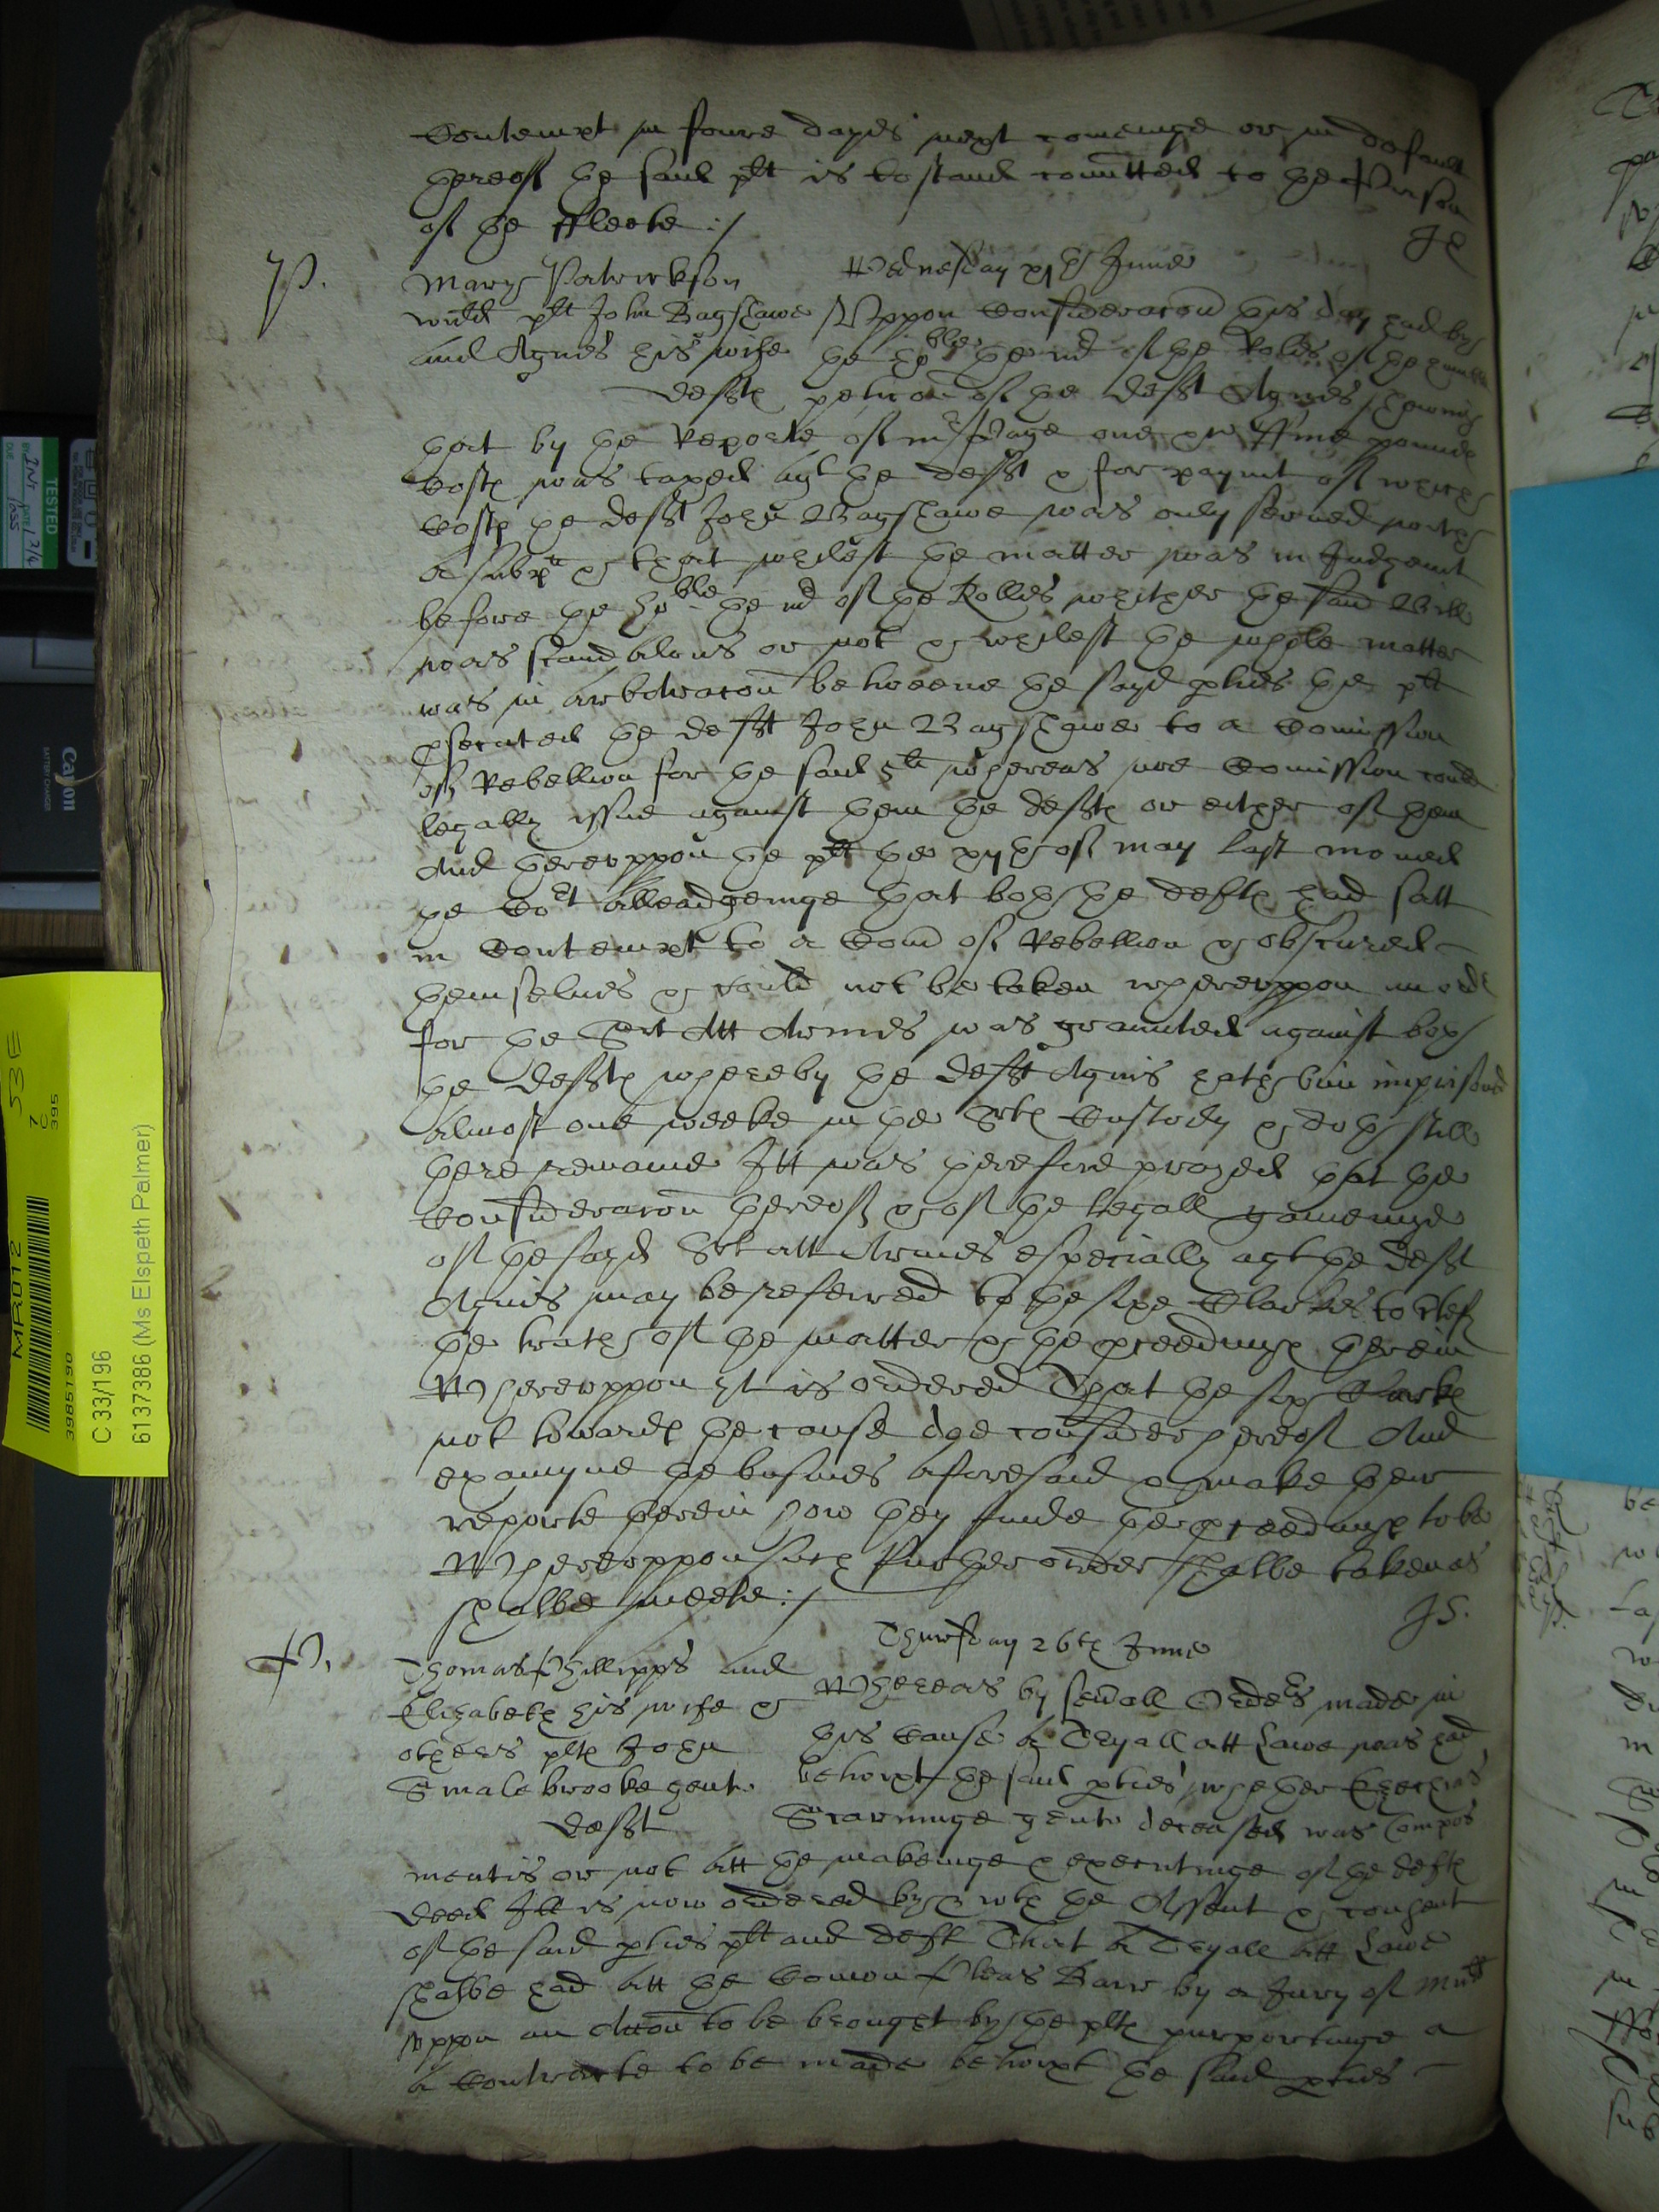 Contempt in foure dayes next comeinge or in default
thereof the said plt is to stand comitted to the Prison
of the Fleete :/
JC
P.
Mary Patrickson
Wednesday xjth June
widd plt John Bagshawe
and Agnes his wife
defts
Uppon Consideracon this day had by
the hoble the mr of the Rolles of the humble
peticon of the deft Agnes shewing
that by the Reporte of mr Page one &c Five pounde
Costs was taxed agt the deft & for paymt of which
Costs the deft John Bagshawe was only served with
a subpa & that whilest the matter was in Judgemt
before the hoble the mr of the Rolles whither the said Bill
was scandalous or not & whilest the whole matter
was in arbitracon betweene the sayd pties the plt
psecuted the deft John Bagshawe to a Comission
of Rebellion for the said 5li whereas noe Comission could
legally issue against them the defts or either of them
And thereuppon the plt the xijth of may last moved
the Cort alleadgeinge that both the defts had satt
in Contempt to a Com of Rebellion & obscured
themselves & could not be taken whereuppon an ordr
for the Srt Att Armes was graunted against both
the defts whereby the deft Agnis hath bin imprisond
almost one weeke in the Srts Custody & doth still
there remaine Itt was therefore prayed that the
Consideracon thereof & of the legall gameinge
of the sayd Srt att Armes especially agt the deft
Agnis may be referred to the sixe Clarkes to Certefy
the truth of the matter & the pceedings therein
Whereuppon it is ordered That the six Clarks
not towards the cause doe consider thereof And
examyne the busines aforesaid & make their
reporte therein how they finde the pceedings to be
Whereuppon such further order shalbe taken as
shalbe meete :/
JC.
P.
Thursday 26th June
Thomas Phillipps and
Elizabeth his wife &
others plts John
Smalebrooke gent
deft
Whereas by sevall Orders made in
this Cause a Tryall att Lawe was had
betwixt the said pties whether
gent deceased was Compos
mentis or not att the makeinge & executinge of the defts
deed Itt is now ordered by & wth the Assent & consent
of the said pties plt and deft That a Tryall att Lawe
shalbe had att the Comon Pleas Barr by a Jury of
uppon an Accon to be brought by the plts purportinge a
a Contracte to be made betwixt the said pties
TESTED
Canon
BATTERY CHARGER
MR012
53E
7
C
395
3985190
C 33/196
6137386 (Ms Elspeth Palmer)